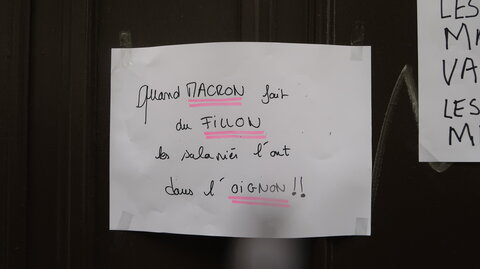 Quand MACRON fait
du FILLON
les salariés l'ont
dans l'OIGNON!!
LES
VA
LES